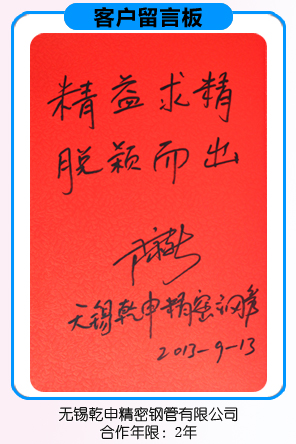 客户留言板
精益求精
脱颖而出
无锡乾申精密钢管
2013-9-13
无锡乾申精密钢管有限公司
合作年限：2年